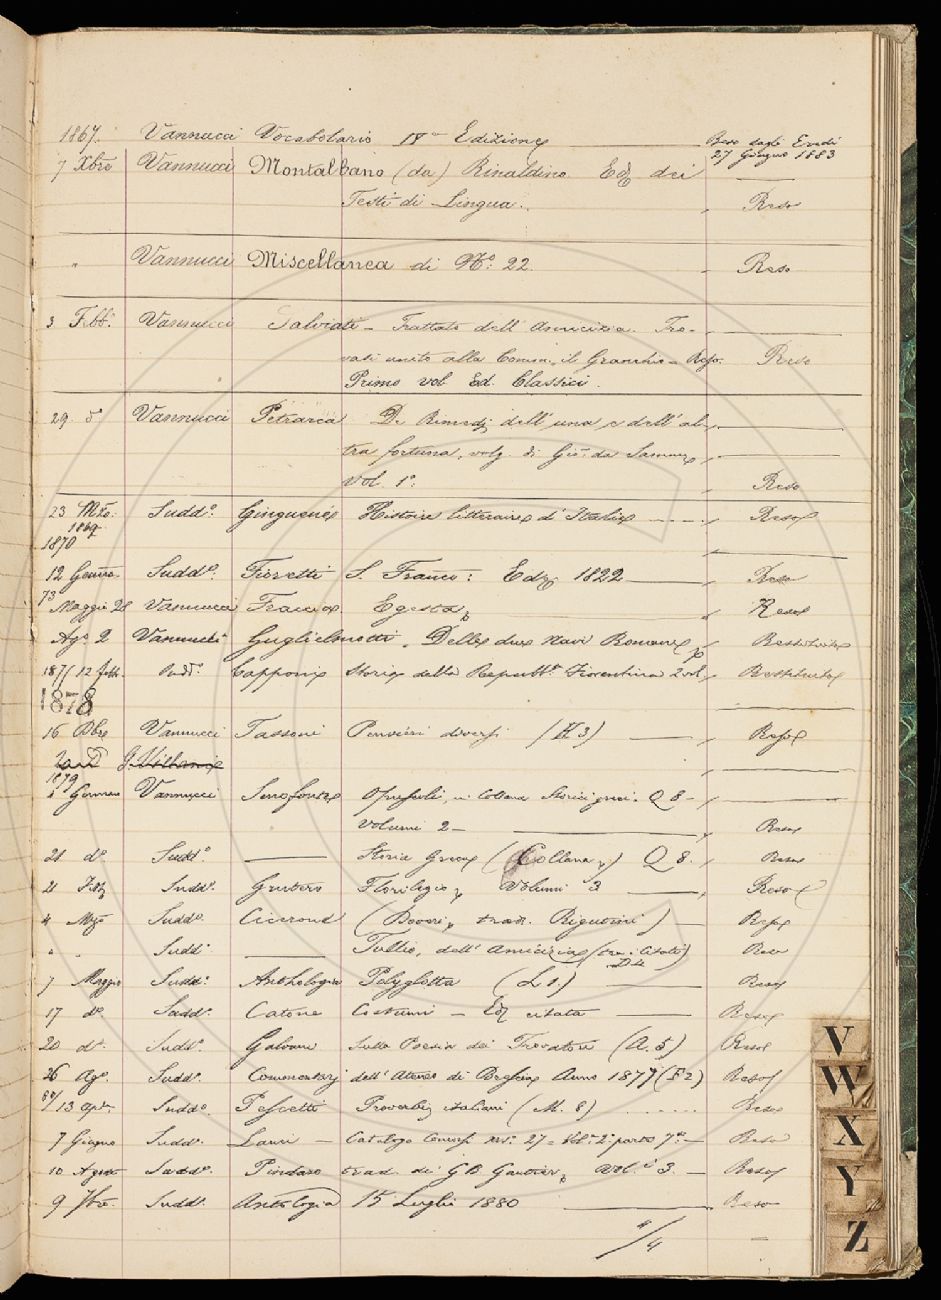 1867. Vannucci Vocabolario IVa Edizione Reso dagli Eredi
27 Giugno 1883
7 Xbre Vannucci Montalbano (da) Rinaldino Ed. dei
Testi di Lingua. Reso
" Vannucci Miscellanea di No: 22. Reso
3 Febb. Vannucci Salviati – Trattato dell'Amicizia. Tro-
vasi unito alla Comm. il Granchio – Reso. Reso
Primo vol Ed. Classici.
29. do Vannucci Petrarca De Rimedj dell'una e dell'al-
tra fortuna, volg. di Gio. da
Vol. 1o: Reso
23 Mzo. Suddo. Ginguené Histoire litteraire d'Italie Reso
1869
1870
12 Genn. Suddo. Fioretti S. Franco: Ediz. 1822 Reso
73
Maggio 28 Vannucci Egesta Reso
Ago 2 Vannucci Guglielmotti. Delle due Navi Romane Restituito
187 12 febb. Sudd. Capponi Storia della Repubb. Fiorentina 2 vol. Restituito
1878
16 Vannucci Tassoni Pensieri diversi (K 3) Reso
G. Villani
1879
Gennaio Vannucci Senofonte Opuscoli, in Collana Storici greci. Q 8 –
Volumi 2 – Reso
21 do Suddo. Storia Greca (Collana) Q 8. Reso
21 Feb Suddo. Grutero Florilegio Volumi 3 Reso
4 Mzo Suddo. Cicerone (Doveri, trad. Rigutini) Reso
" " Suddo Tullio, dell'Amicizia (tra. citata) Reso
D4
7 Maggio Suddo. Anthologia Polyglotta (L 1.) Reso
17 do. Suddo. Catone Costumi – Ed citata Reso
20 do. Suddo. Galvani Sulla Poesia dei Trovatori (A. 5) Reso
26 Ago. Suddo. Commentarj dell'Ateneo di Brescia Anno 1877 (F 2) Reso
13 Ap. Suddo. Pescetti Proverbi italiani (M. 8) Reso
7 Giugno Suddo. Lami – Catalogo 27 = Vol. 2o parte 7a. – Reso
10 Agosto Suddo. Pindaro trad. di G B Gautier, vol. i 3. – Reso
9 7bre. Suddo. Antologia 15 Luglio 1880 Reso
V
W
X
Y
Z